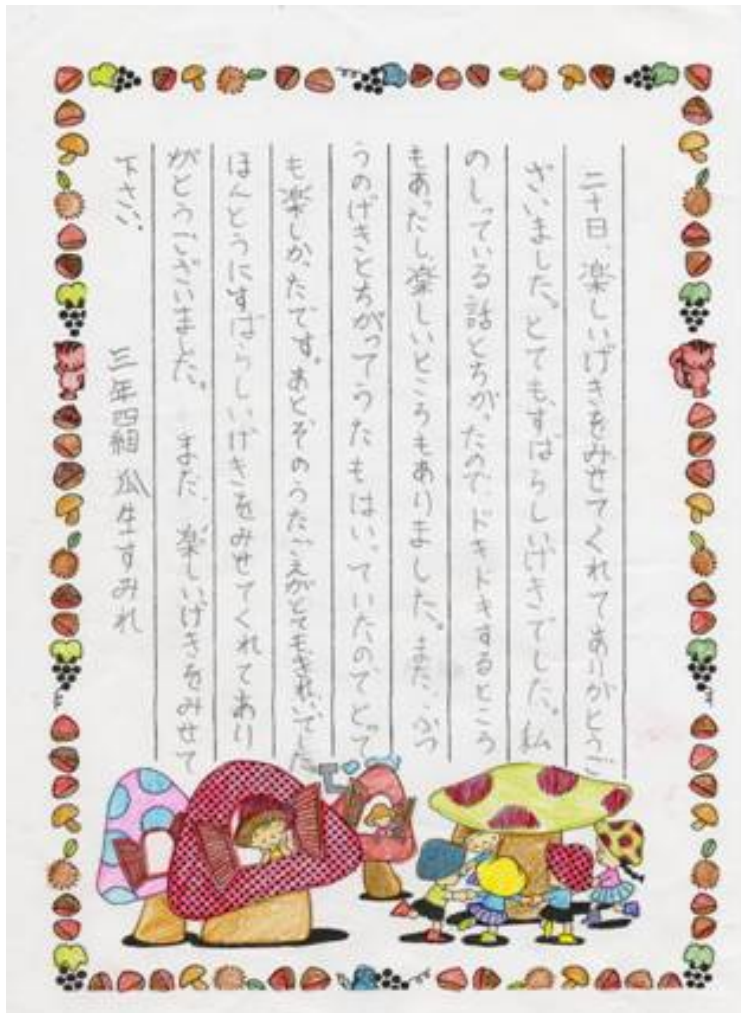 二十日、楽しいげきをみせてくれてありがとうご
ざいました。とてもすばらしいげきでした。私
のしっている話とちがったので、ドキドキするところ
もあったし、楽しいところもありました。また、ふつ
うのげきとちがってうたもはいっていたのでとって
も楽しかたです。あとそのうたごえがとてもきれいでした
ほんとうにすばらしいげきをみせてくれてあり
がとうございました。また、楽しいげきをみせて
下さい。
三年四組 瓜生すみれ